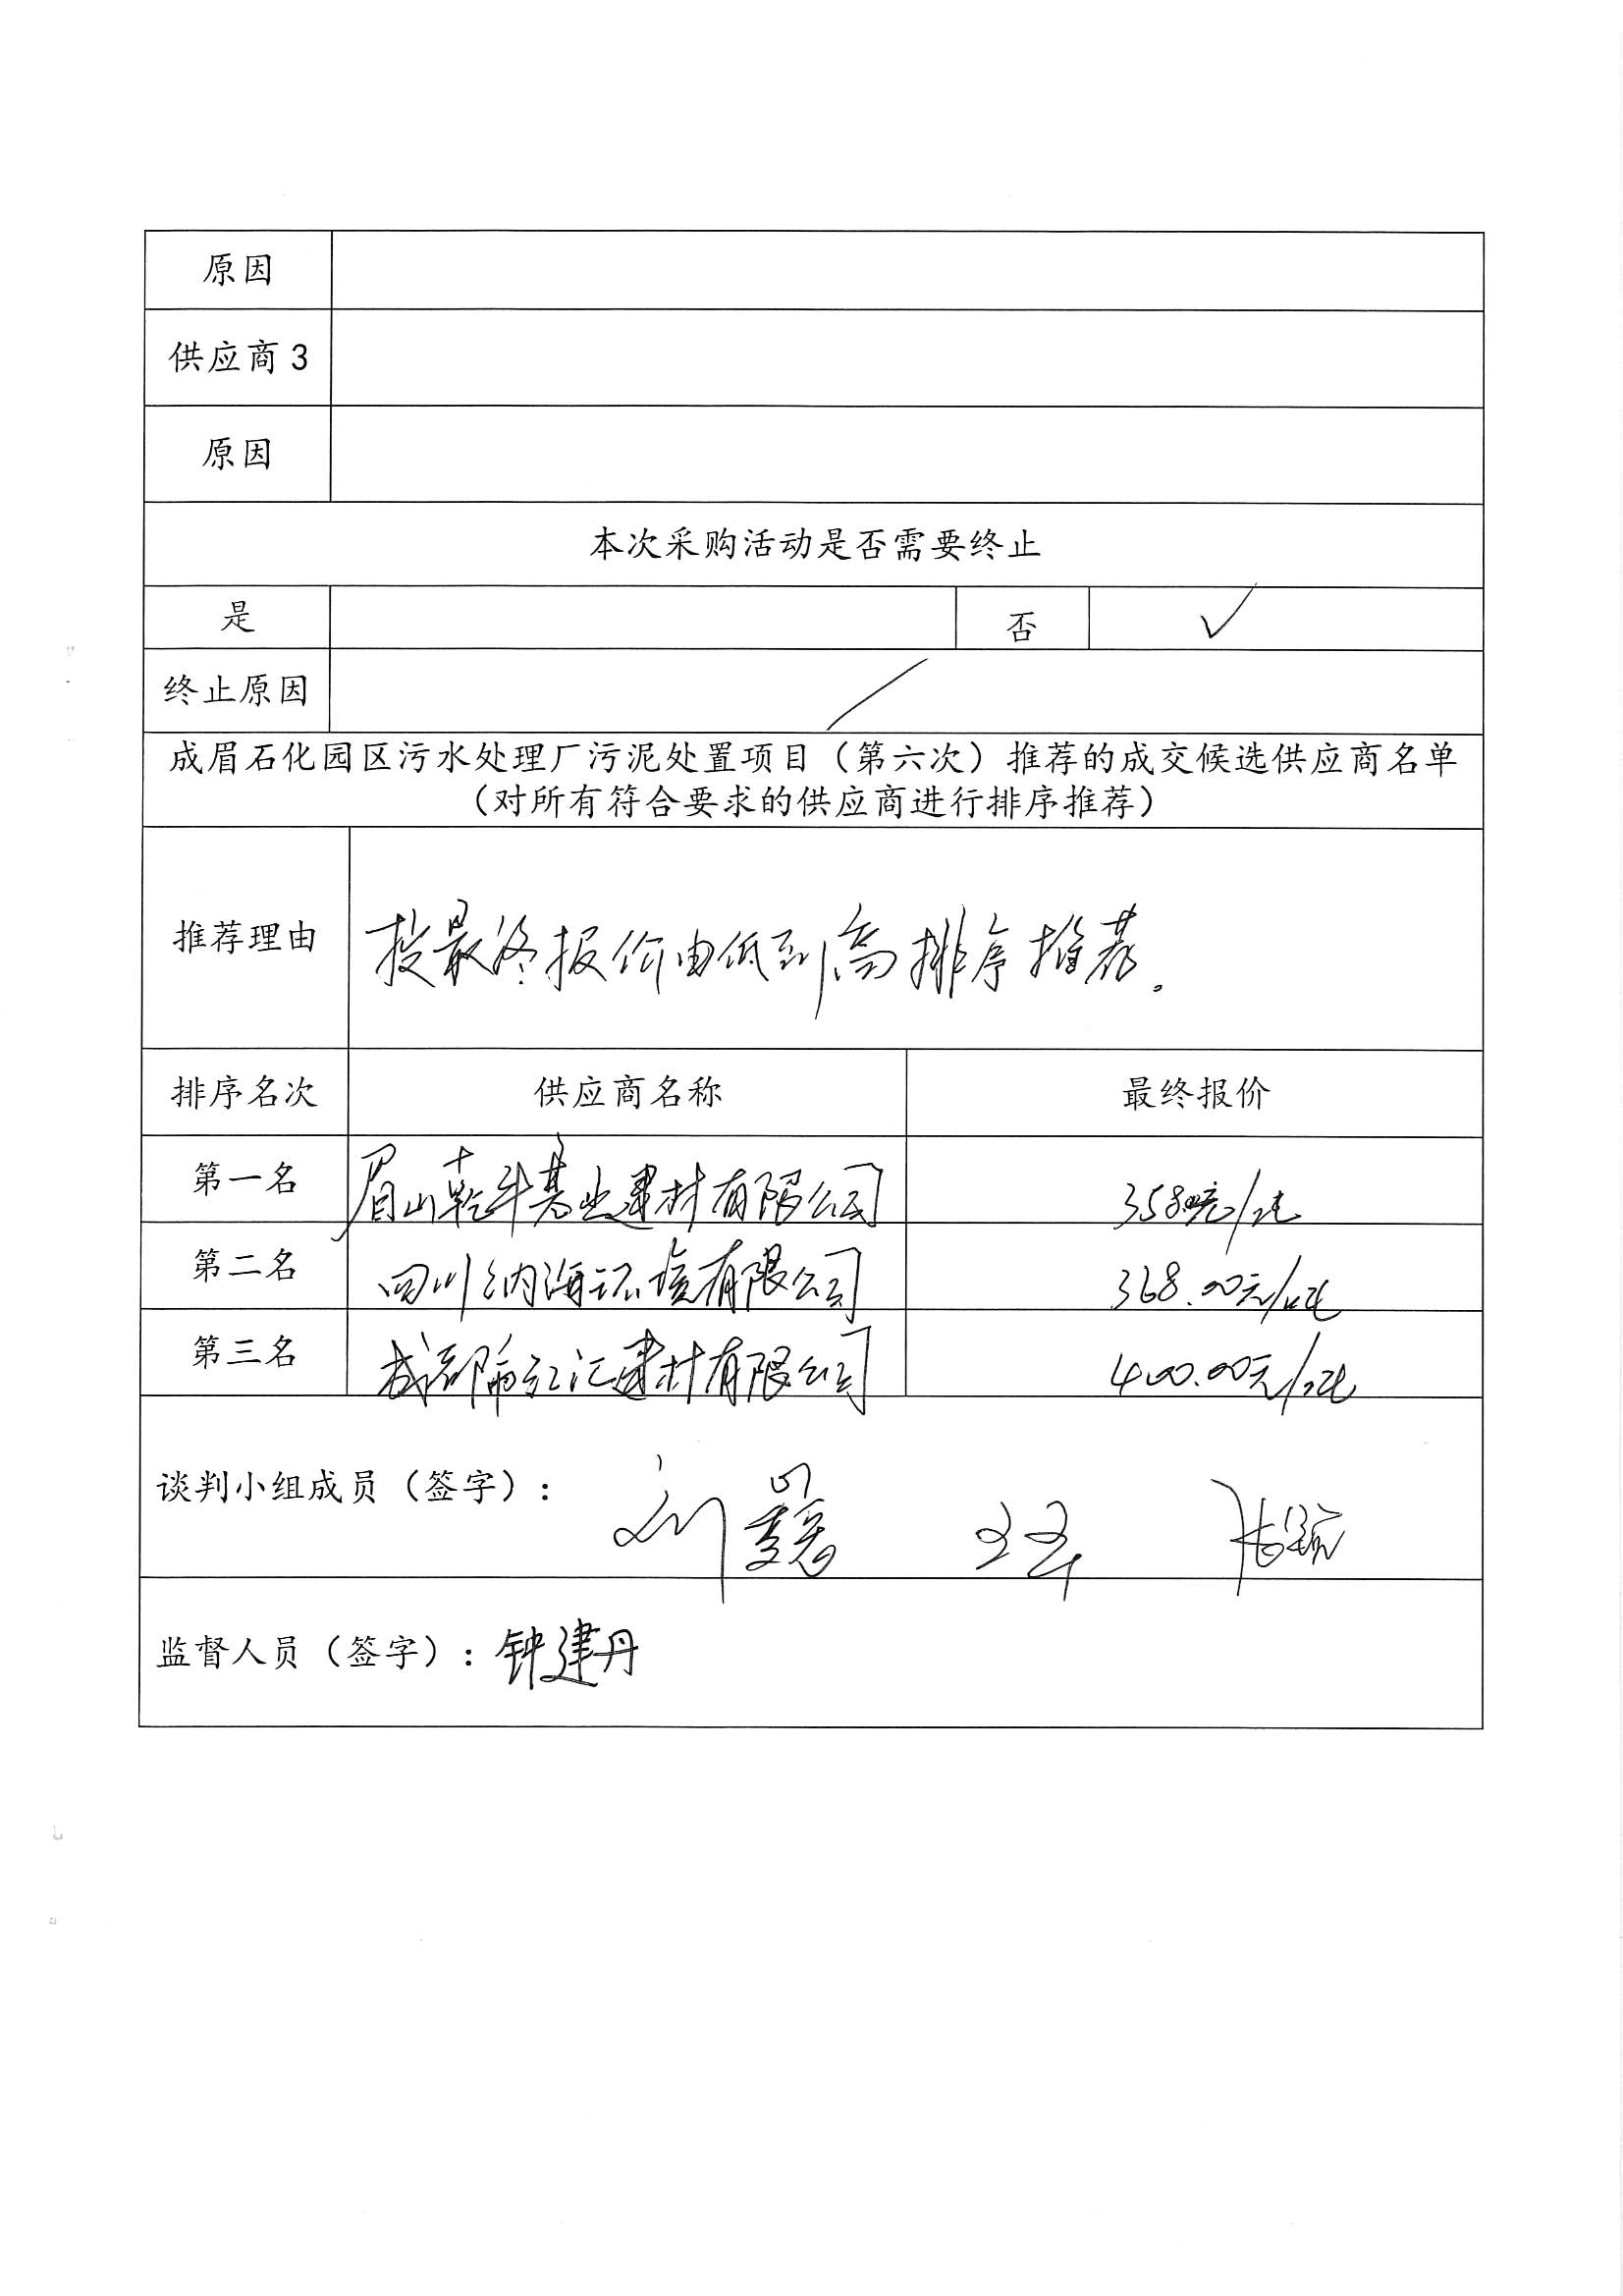 原因
供应商3
原因
本次采购活动是否需要终止
是 否 √
终止原因 /
成眉石化园区污水处理厂污泥处置项目（第六次）推荐的成交候选供应商名单
（对所有符合要求的供应商进行排序推荐）
推荐理由 按最终报价由低到高排序推荐。
排序名次 供应商名称 最终报价
第一名 眉山乾斗基业建材有限公司 358.00元/吨
第二名 四川纳海环境有限公司 368.00元/吨
第三名 成都市红汇建材有限公司 400.00元/吨
谈判小组成员（签字）： 刘
监督人员（签字）：钟建丹